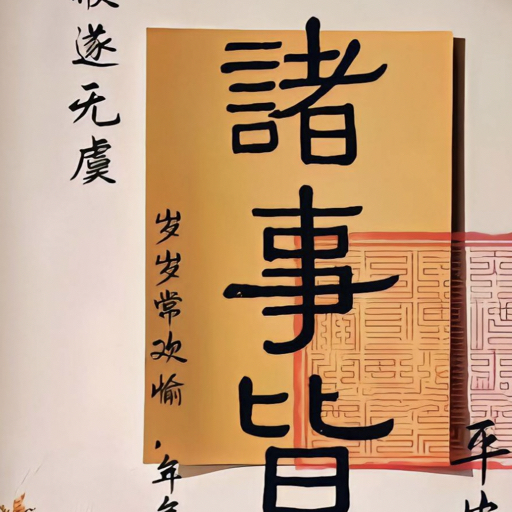 平
諸事皆
岁岁常欢愉·年
遂无虞